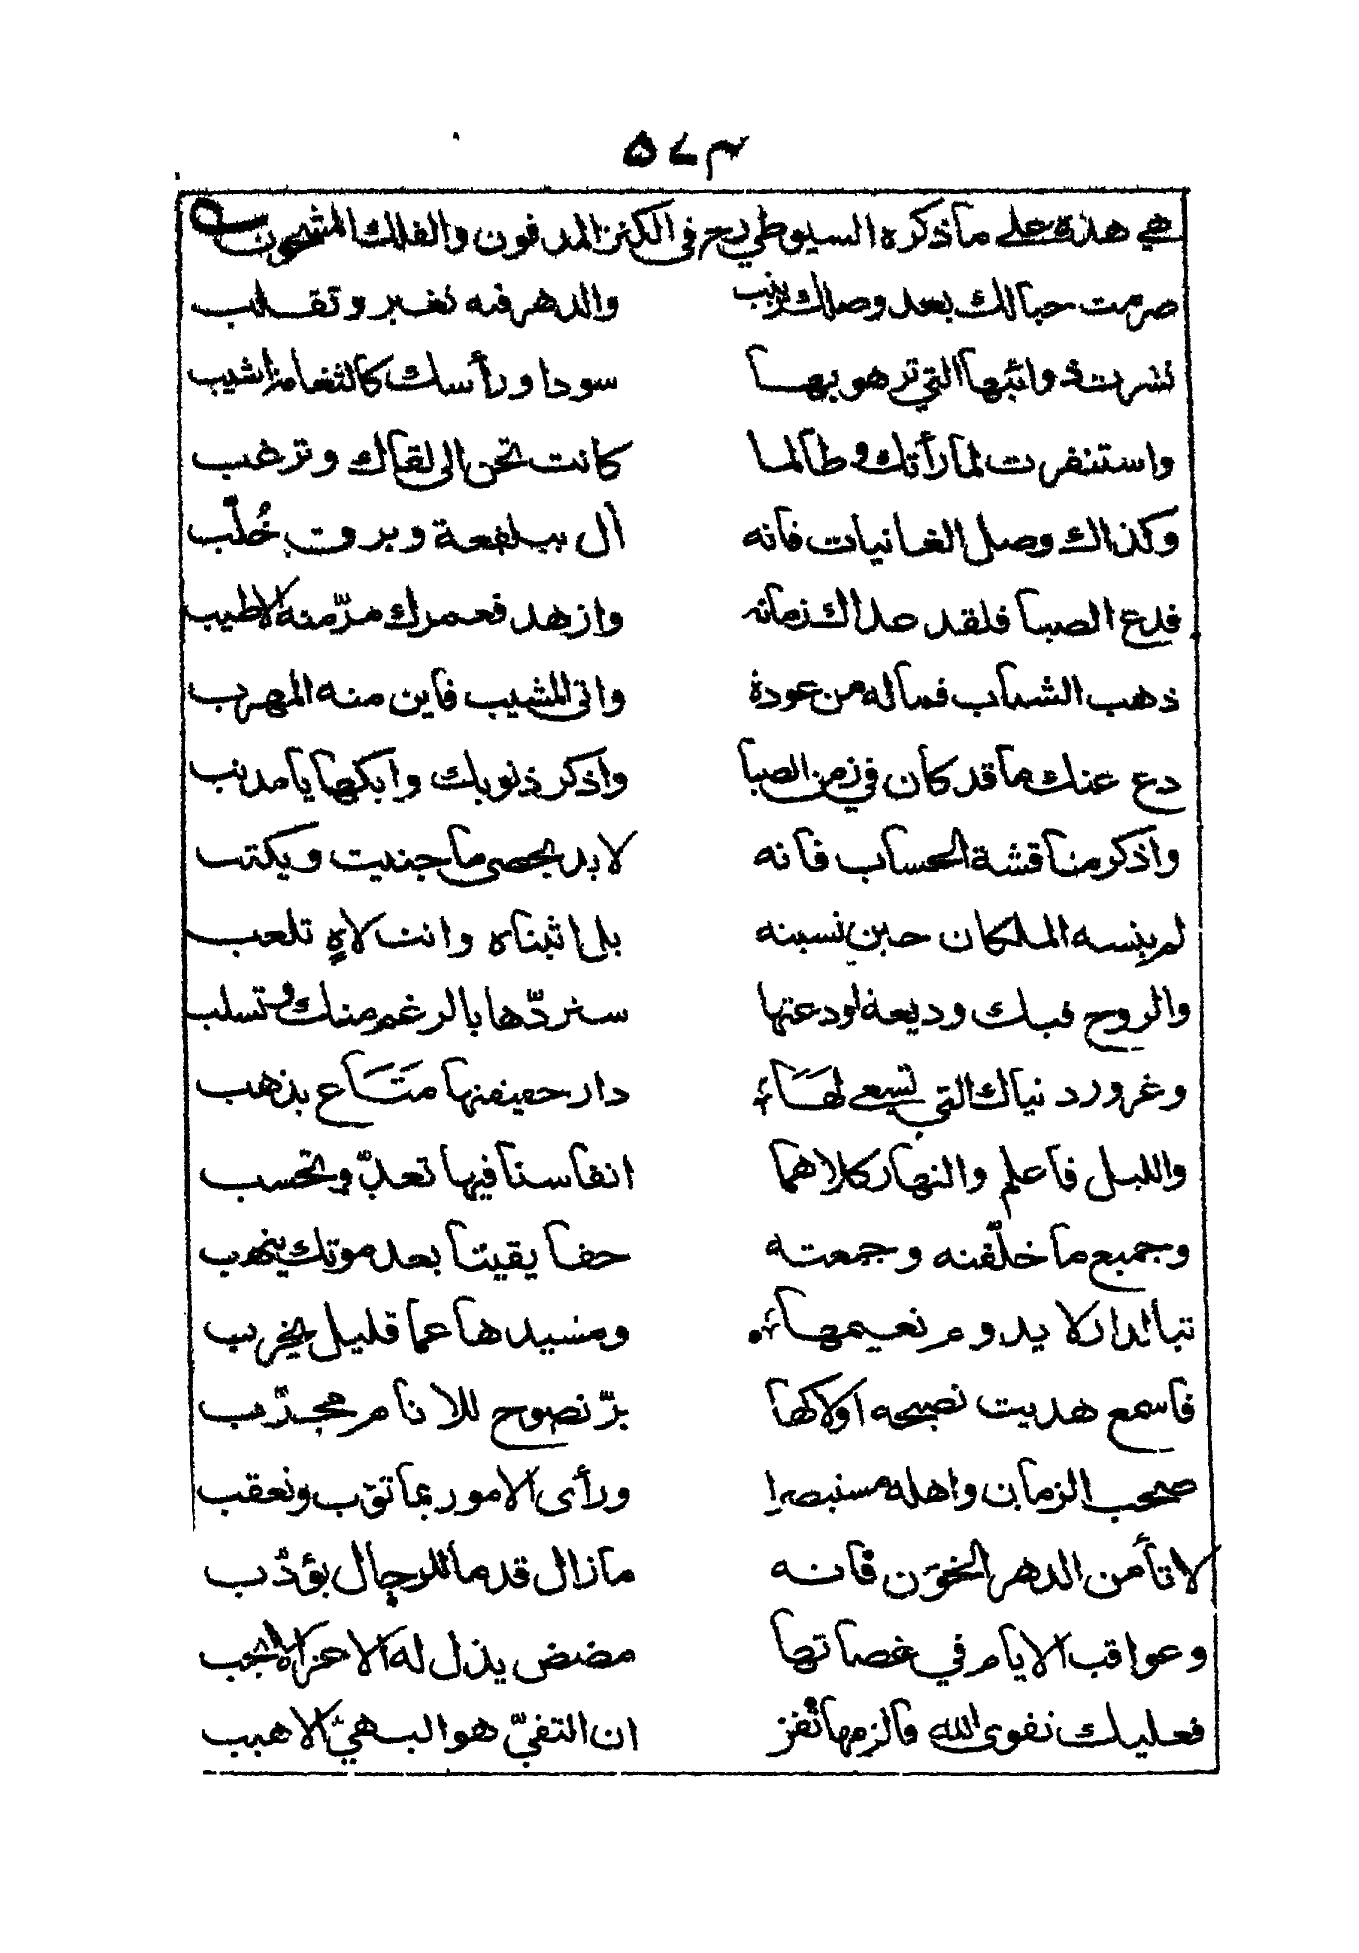 ٥٧٣
هي هذة علي ماذكره السيوطي رح في الكنز المدفون والفلك المشحون
صرمت حبالك بعد وصلك زينب والدهر فيه تغير وتقلب
نشرت ذوائبها التي تزهو بها سودا ورأسك كالثغامة اشيب
واستنفرت لما رأتك وطالما كانت تحن الى لقاك وترغب
وكذاك وصل الغانيات فانه آل ببلقعة وبروت خُلّب
فدع الصبا فلقد عداك زمانه وازهد فعمرك مرّ منه الاطيب
ذهب الشباب فماله من عودة واتى المشيب فاين منه المهرب
دع عنك ما قد كان في زمن الصبا واذكر ذنوبك وابكها يا مذنب
واذكر مناقشة الحساب فانه لابد يحصى ما جنيت ويكتب
لم ينسه الملكان حين نسيته بل اثبتاه وانت لاهٍ تلعب
والروح فيك وديعة اودعتها ستردّها بالرغم منك وتسلب
وغرور دنياك التي تسعى لهَا دار حقيقتها متَاع يذهب
والليل فاعلم والنهار كلاهما انفاسنا فيها تعدّ وتحسب
وجميع ما خلّفته وجمعته حقا يقينا بعد موتك ينهب
تبا لدار لا يدوم نعيمها ومشيدها عما قليل يخرب
فاسمع هديت نصيحه اولاكها برّ نصوح للانام مجرّب
صحب الزمان واهله مستبصرا ورأى الامور بما تؤب وتعقب
لا تأمن الدهر الخؤن فانه مازال قدما للرجال يؤدّب
وعواقب الايام في غصاتها مضض يذل له الاعز الانجب
فعليك تقوى الله فالزمها تفز ان التقيّ هو البهيّ الاهيب